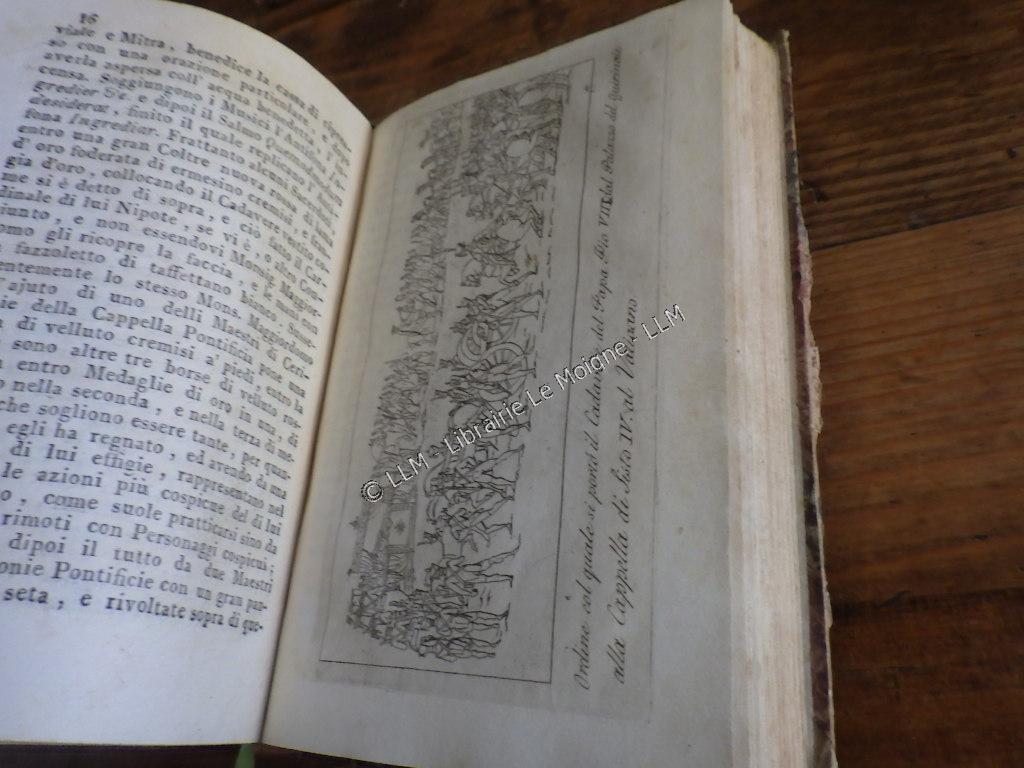 16
viale e Mitra, benedice la cassa di
so con una orazione particolare, e dopo
averla aspersa coll' acqua benedetta, l' in-
censa. Soggiungono i Musici l'Antifona
gredier &c. e dipoi il Salmo Quemadmodum
desiderat, finito il quale replicano l' Anti-
fona Ingrediar. Frattanto alcuni
entro una gran Coltre nuova
d' oro foderata di ermesino cremisi, e
gia d'oro, collocando il Cadavere vestito co-
me si è detto di sopra, e ciò fatto il Car-
dinale di lui Nipote, se vi è, o altro Con-
giunto, e non essendovi Monsig. Maggior-
omo gli ricopre la faccia, e le mani con
fazzoletto di taffettano bianco.
entemente lo stesso Mons. Maggiordomo
ajuto di uno delli Maestri di Ceri-
ie della Cappella Pontificia pone una
di velluto cremisi a' piedi, entro la
sono altre tre borse di velluto ros-
entro Medaglie di oro in una, di
nella seconda, e nella terza di me-
che sogliono essere tante, per quan-
egli ha regnato, ed avendo da una
di lui effigie, rappresentano nel
le azioni più cospicue del di lui
o, come suole pratticarsi sino da
rimoti con Personaggi cospicui;
dipoi il tutto da due Maestri
onie Pontificie con un gran pan-
seta, e rivoltate sopra di que-
Ordine col quale si portò il Cadavere del Papa Pio VII. dal Palazzo del Quirinale
alla Cappella di Sisto IV. al Vaticano.
© LLM - Librairie Le Moigne - LLM